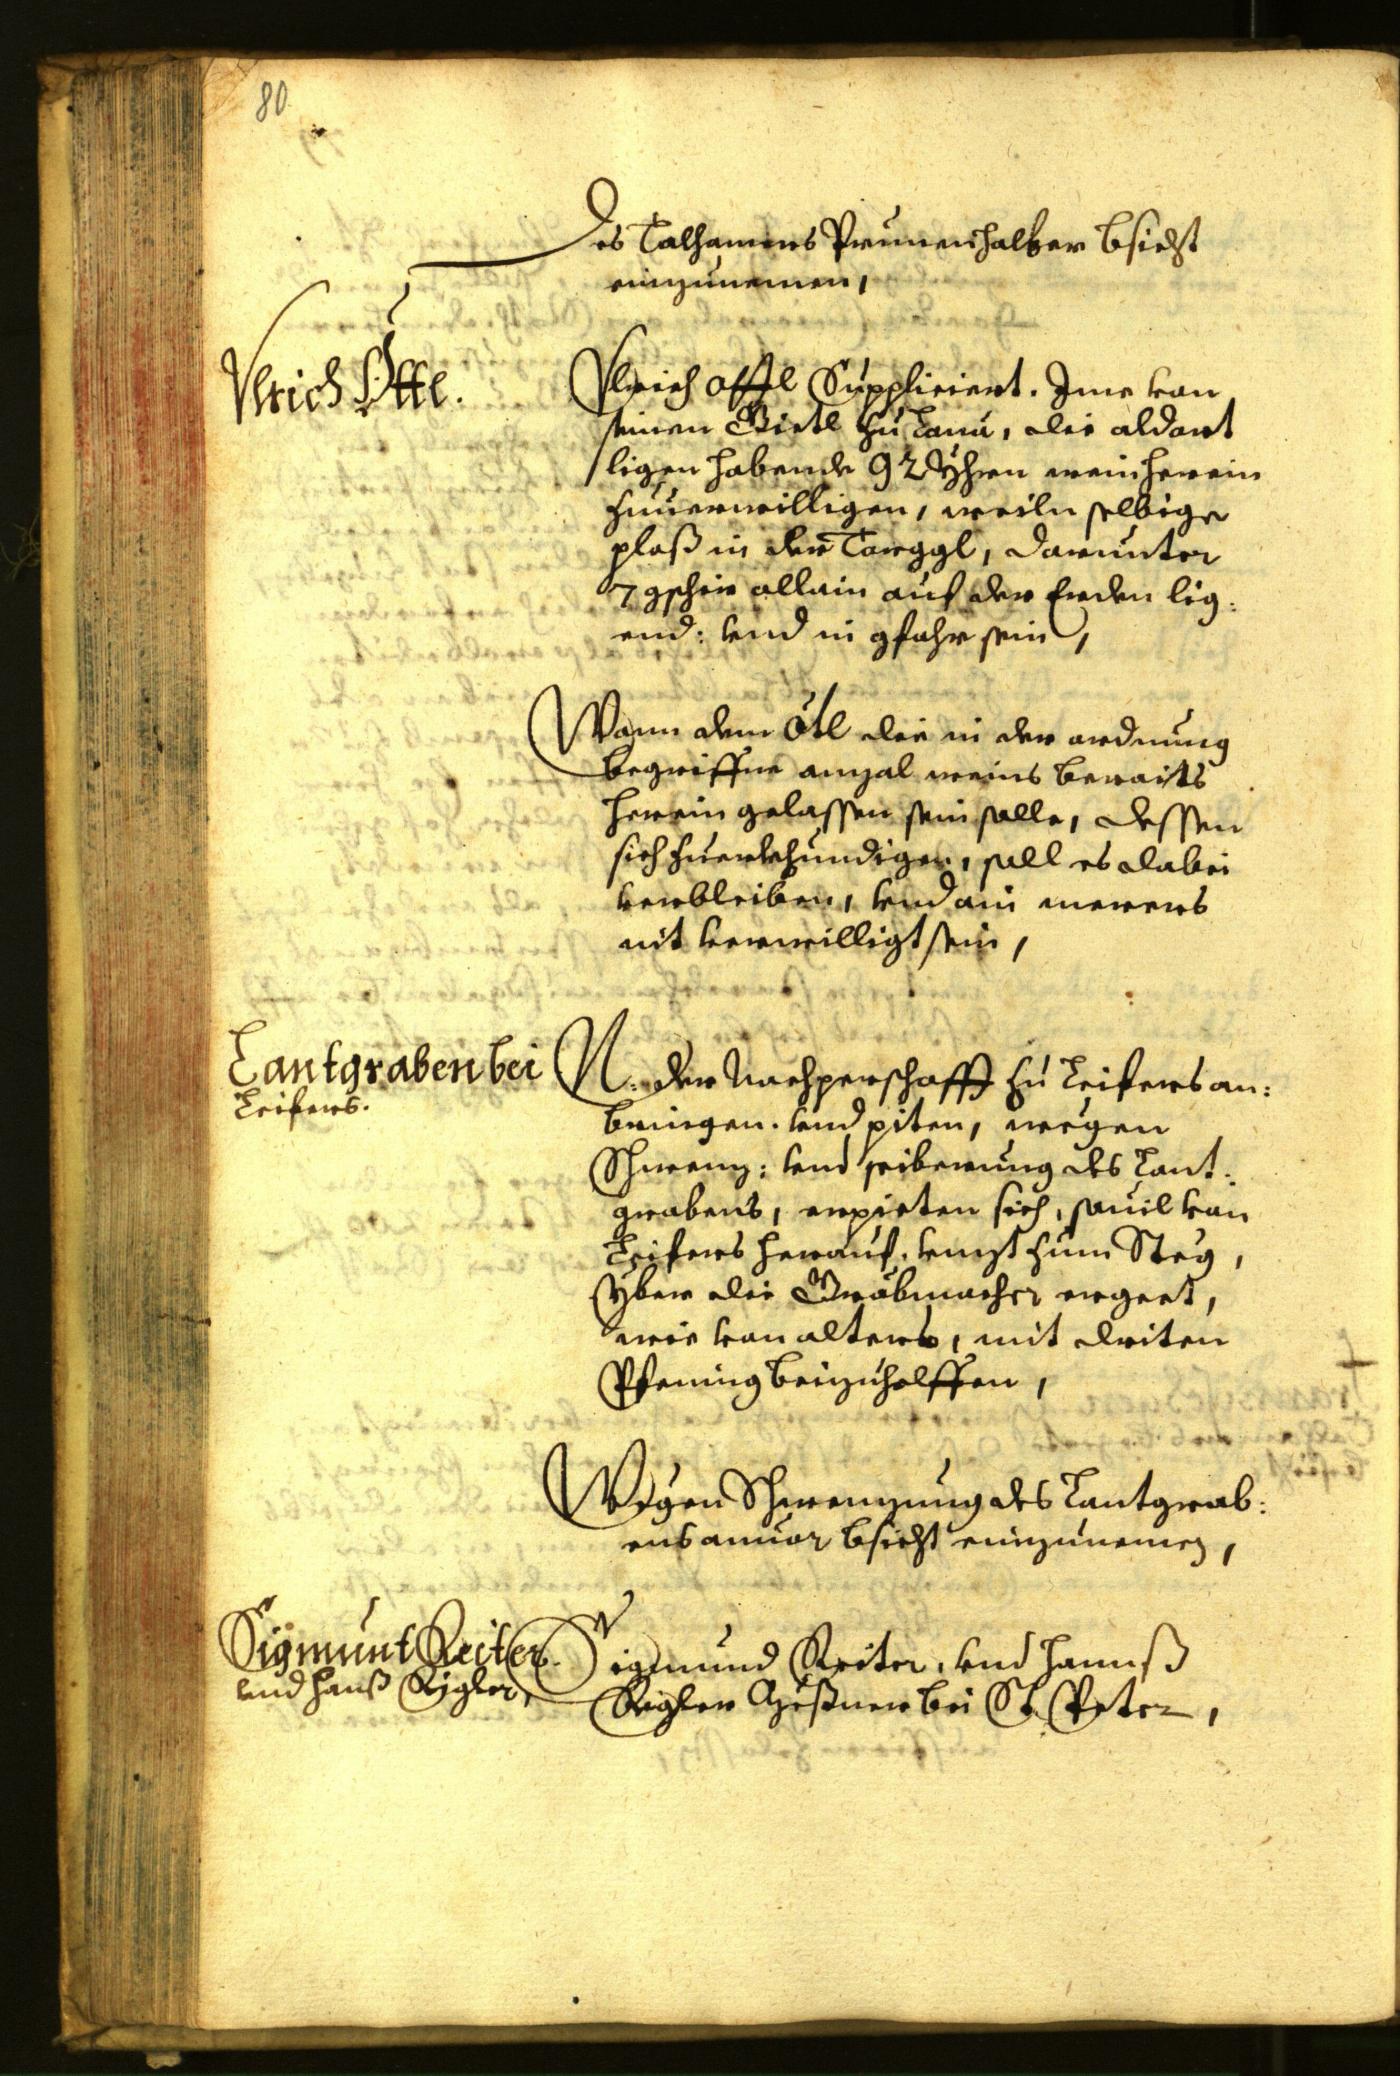 80
Des Talhamers Prunenhalber bsicht
einzunemen,
Vlrich Öttl.
Vlrich Ottl Suppliciert. Ime von
seinen Güetl zu Lana, die aldort
ligen habende 92 Yhrn wein herein
zuuerwilligen, weiln selbige
ploß in der Torggl, darunter
7 gschir allain auf der Erden lig:
end: vnd in gfahr sein,
Wann dem Ötl die in der ordnung
begriffne anzal weins beraits
herein gelassen sein solle, dessen
sich zuerkhundigen, soll es dabei
verbleiben, vnd ain merers
nit verwilligt sein,
Lantgraben bei
Leifers.
N: der Nachperschafft zu Leifers an:
bringen. vnd piten, wegen
Schwenz: vnd seiberung des Lant:
grabens, erpieten sich, souil von
Leifers herauf. vnzt zum Steg,
yber die Grabmacher ergeet,
wie von alters, mit driten
Pfening beizuhelffen,
Wegen Schwenzung des Lantgrab:
ens anuor bsicht einzunemen,
Sigmunt Reiter.
vnd Hanß Rigler,
Sigmund Reiter, vnd Hannß
Rigler Gesßner bei St. Peter,